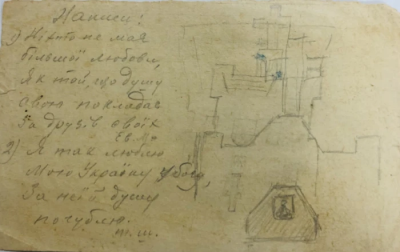 Написи:
1) Ніхто не мая
більшої любови,
Як той, що душу
свою покладає
За друзів своїх
Ев.
2) Я так люблю
Мою Україну убогу,
За неї душу
погублю.
Т.Ш.